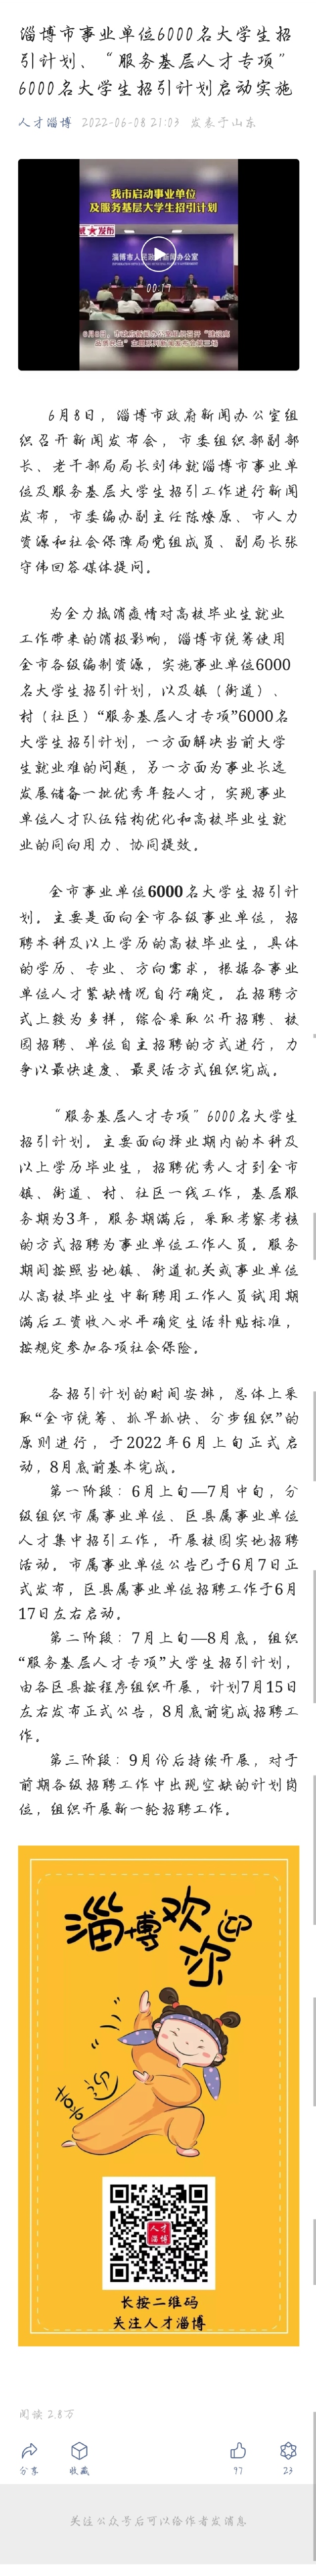 淄博市事业单位6000名大学生招
引计划、“服务基层人才专项”
6000名大学生招引计划启动实施
人才淄博 2022-06-08 21:03 发表于山东
我市启动事业单位
及服务基层大学生招引计划
发布
淄博市人民政府新闻办公室
00:19
6月8日，淄博市政府新闻办公室组
织召开新闻发布会，市委组织部副部
长、老干部局局长刘伟就淄博市事业单
位及服务基层大学生招引工作进行新闻
发布，市委编办副主任陈燎原、市人力
资源和社会保障局党组成员、副局长张
守伟回答媒体提问。
为全力抵消疫情对高校毕业生就业
工作带来的消极影响，淄博市统筹使用
全市各级编制资源，实施事业单位6000
名大学生招引计划，以及镇（街道）、
村（社区）“服务基层人才专项”6000名
大学生招引计划，一方面解决当前大学
生就业难的问题，另一方面为事业长远
发展储备一批优秀年轻人才，实现事业
单位人才队伍结构优化和高校毕业生就
业的同向用力、协同提效。
全市事业单位6000名大学生招引计
划。主要是面向全市各级事业单位，招
聘本科及以上学历的高校毕业生，具体
的学历、专业、方向需求，根据各事业
单位人才紧缺情况自行确定。在招聘方
式上较为多样，综合采取公开招聘、校
园招聘、单位自主招聘的方式进行，力
争以最快速度、最灵活方式组织完成。
“服务基层人才专项”6000名大学生
招引计划。主要面向择业期内的本科及
以上学历毕业生，招聘优秀人才到全市
镇、街道、村、社区一线工作，基层服
务期为3年，服务期满后，采取考察考核
的方式招聘为事业单位工作人员。服务
期间按照当地镇、街道机关或事业单位
从高校毕业生中新聘用工作人员试用期
满后工资收入水平确定生活补贴标准，
按规定参加各项社会保险。
各招引计划的时间安排，总体上采
取“全市统筹、抓早抓快、分步组织”的
原则进行，于2022年6月上旬正式启
动，8月底前基本完成。
第一阶段：6月上旬—7月中旬，分
级组织市属事业单位、区县属事业单位
人才集中招引工作，开展校园实地招聘
活动。市属事业单位公告已于6月7日正
式发布，区县属事业单位招聘工作于6月
17日左右启动。
第二阶段：7月上旬—8月底，组织
“服务基层人才专项”大学生招引计划，
由各区县按程序组织开展，计划7月15日
左右发布正式公告，8月底前完成招聘工
作。
第三阶段：9月份后持续开展，对于
前期各级招聘工作中出现空缺的计划岗
位，组织开展新一轮招聘工作。
淄博欢迎
你
喜迎
人才
淄博
长按二维码
关注人才淄博
阅读 2.8万
分享 收藏 97 23
关注公众号后可以给作者发消息